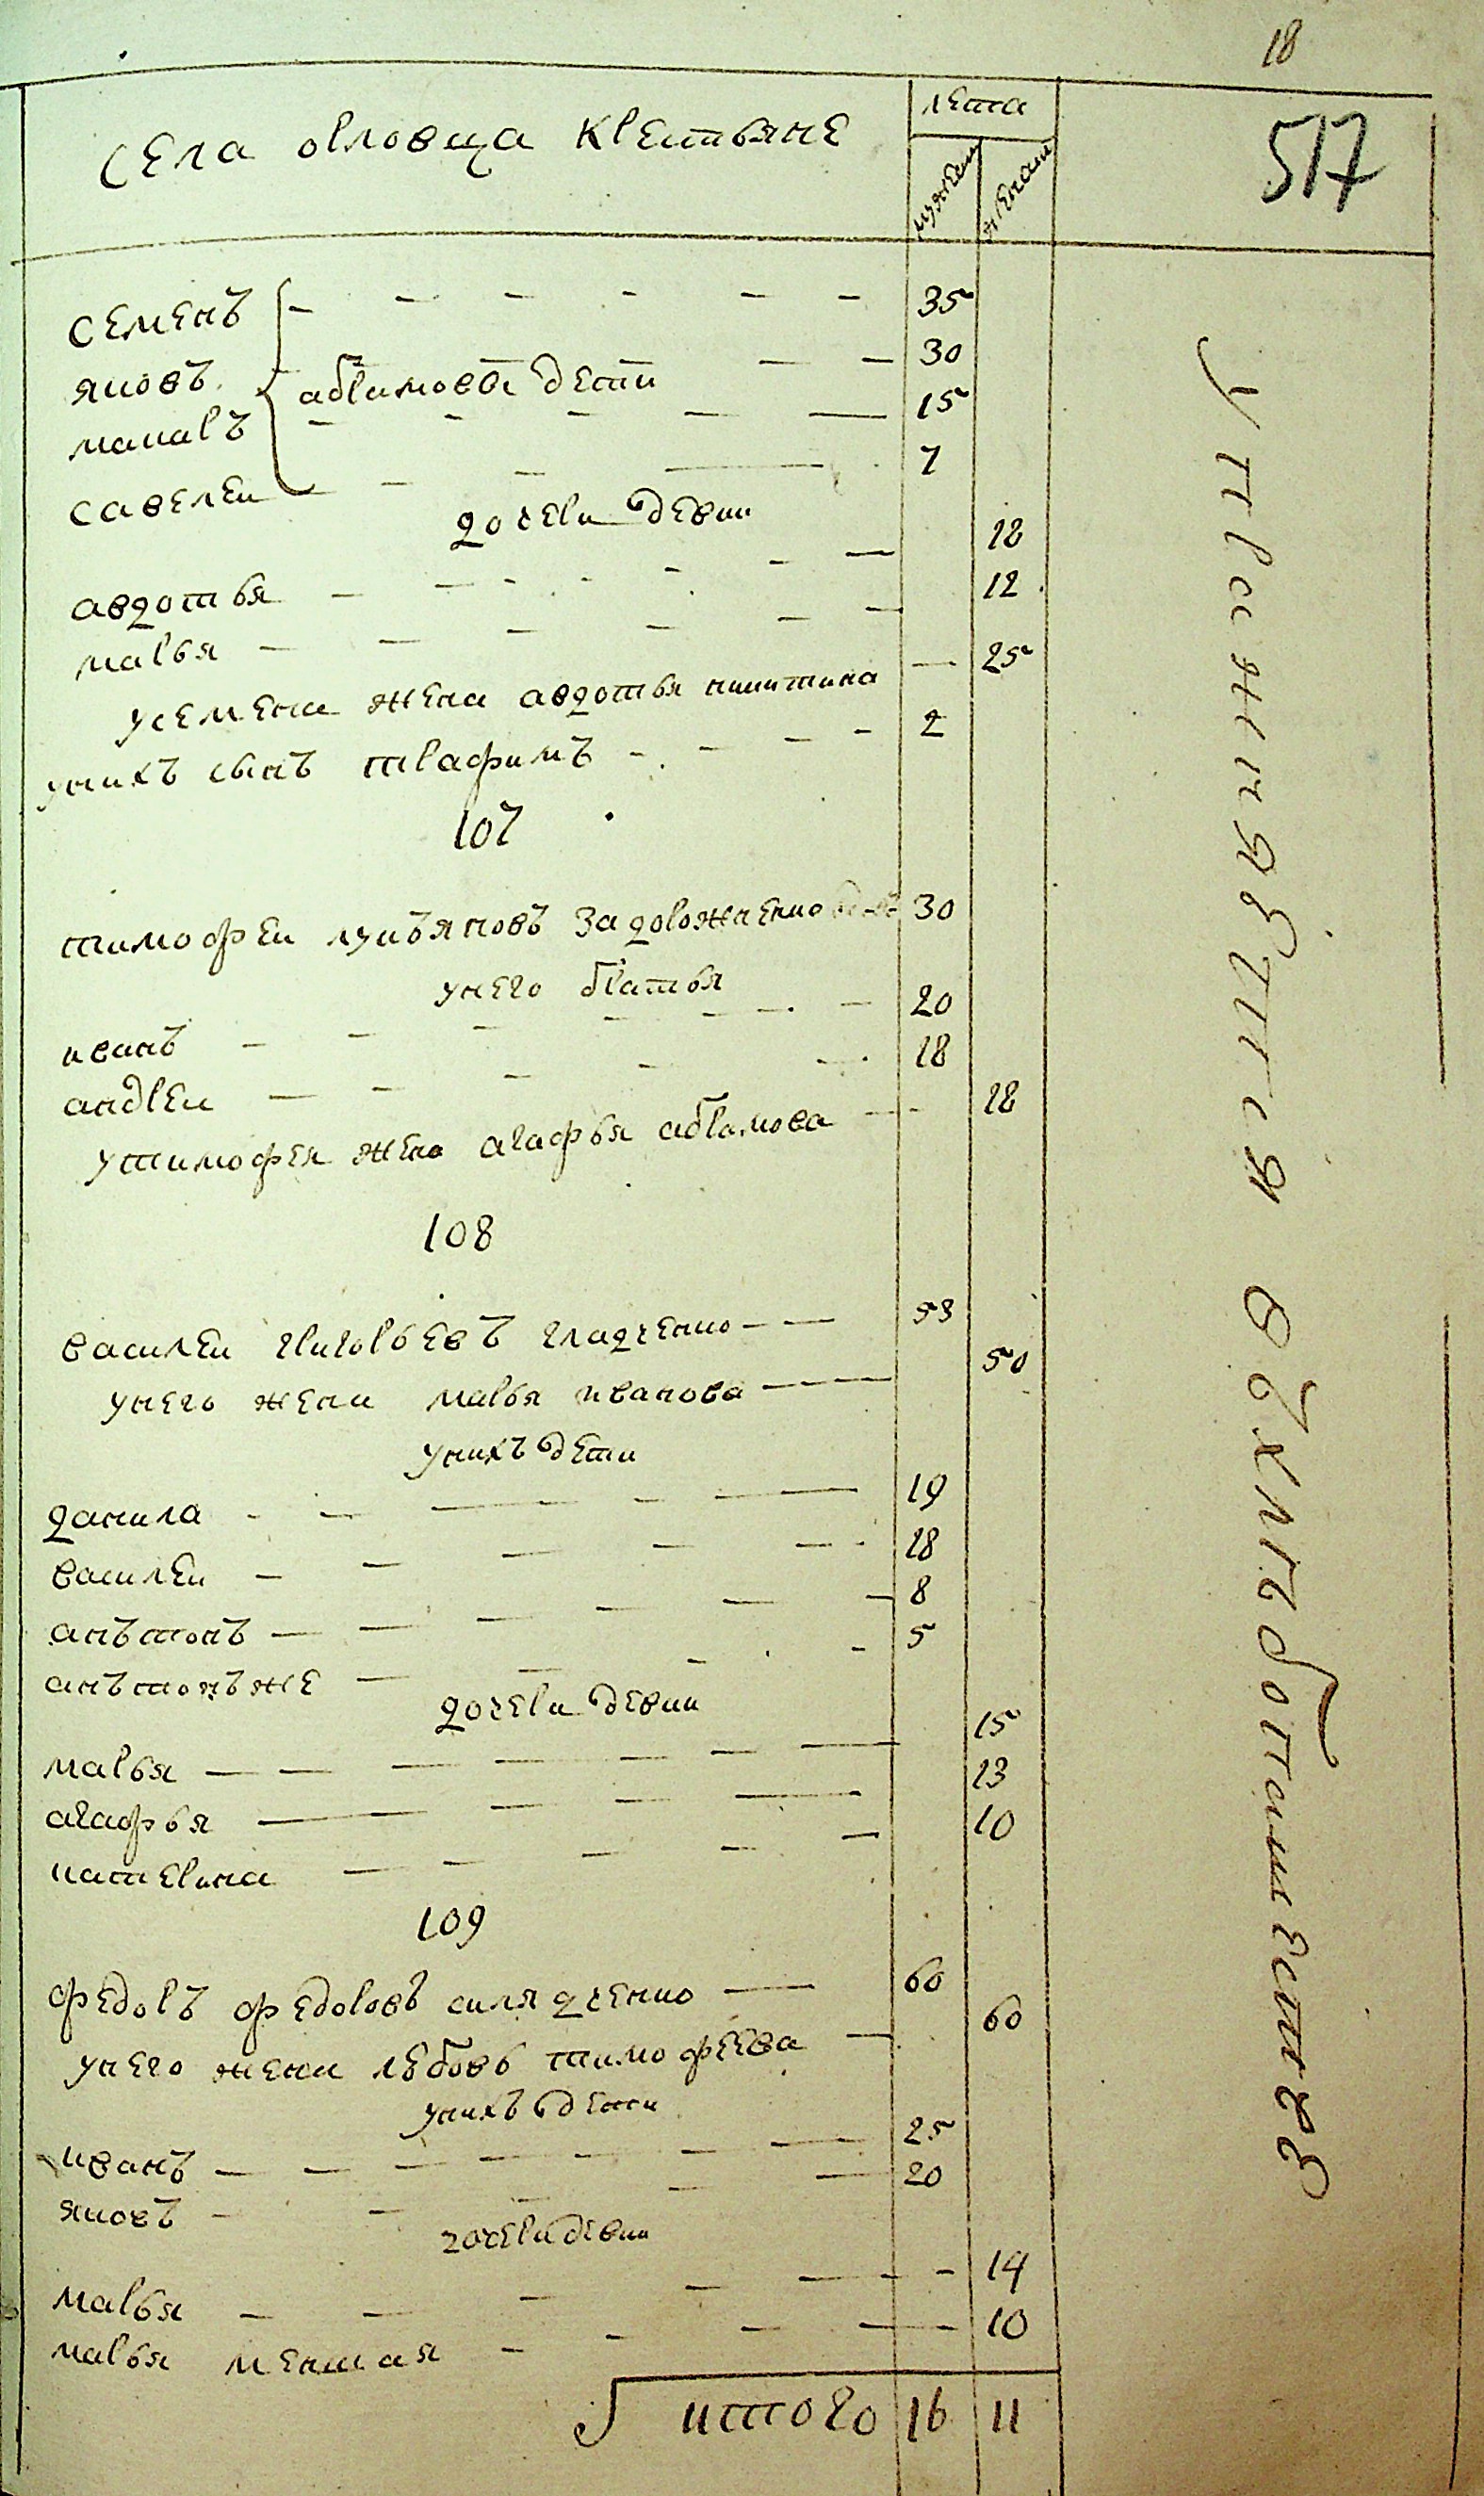 18
517
села орловца крестьяне
лета
мужеи
женам
семенъ 35
яковъ абрамовы дети 30
макаръ 15
савелеи 7
дочери девки
авдотья 18
марья 12
у семена жена авдотья никитина 25
у нихъ сынъ трафимъ 2
107
тимофеи лукъяновъ задорожненко 30
у него братья
иванъ 20
андреи 18
у тимофея жена агафья абрамова 18
108
василеи григорьевъ гладченко 53
у него жена марья иванова 50
у нихъ дети
данила 19
василеи 18
анътонъ 8
анътонъ же 5
дочери девки
марья 15
агафья 13
катерина 10
109
федоръ федоровъ силядченко 60
у него жена любовь тимофеева 60
у нихъ дети
иванъ 25
яковъ 20
дочери девки
марья 14
марья меншая 10
итого 16 11